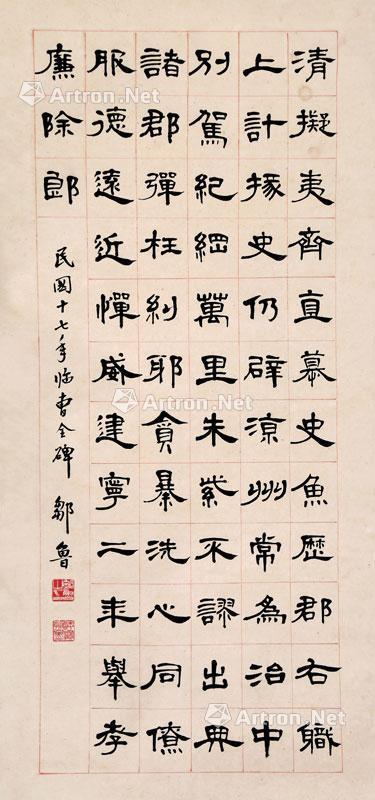 清擬夷齊直慕史魚歷郡右職
上計掾史仍辟涼州常為治中
別駕紀綱萬里朱紫不謬出典
諸郡彈枉糾邪貪暴洗心同僚
服德遠近憚威建寧二年舉孝
廉除郎
民國十七年臨曹全碑 鄒魯
Artron.Net
Artron.Net
Artron.Net
Artron.Net
Artron.Net